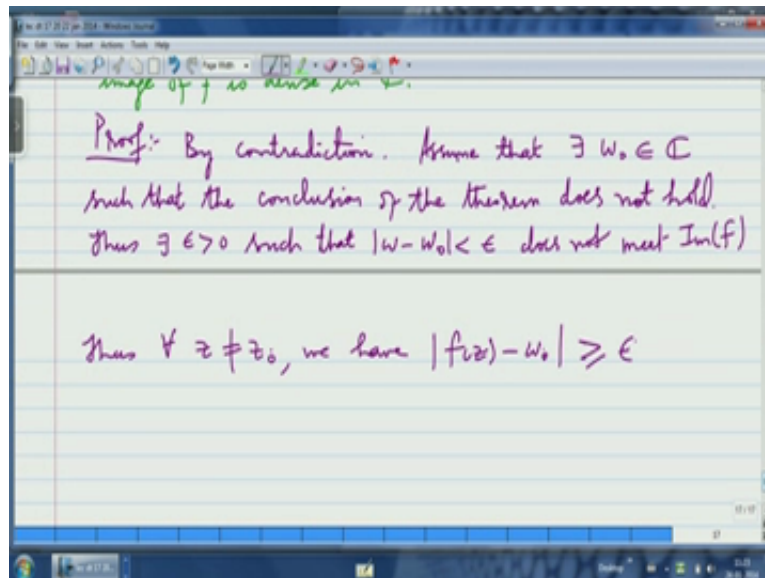 File Edit View Insert Actions Tools Help
Page Width
image of f is dense in ℂ.
Proof:- By contradiction. Assume that ∃ w₀ ∈ ℂ
such that the conclusion of the theorem does not hold.
Thus ∃ ϵ>0 such that |w-w₀|< ϵ does not meet Im(f)
Thus ∀ z ≠ z₀, we have |f(z)-w₀| ⩾ ϵ
17/17
17